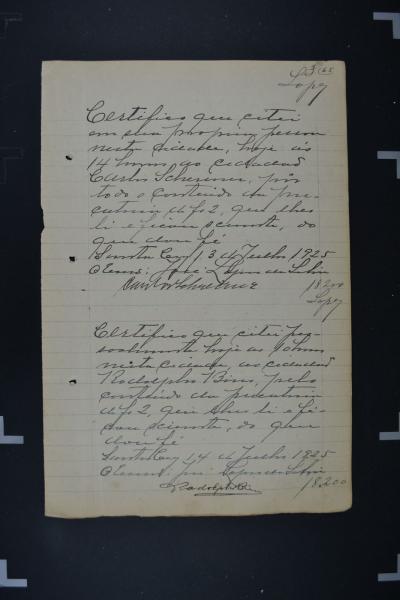 Lopes
Certifico que citei
em sua propria pessoa
nesta cidade, hoje ás
14 horas ao cidadão
Carlos Schreiner, por
todo o conteúdo da pre-
catoria de fs 2, que lhes
li e ficou sciente, do
que dou fé
Santa Cruz, 13 de Julho 1925
José Lopes da Silva
18200
Lopes
Certifico que citei pes-
soalmente hoje as horas
nesta cidade, ao cidadão
Rodolpho, pelo
conteúdo da precatoria
de fs 2, que lhes li e fi-
cou sciente, do que
dou fé
Santa Cruz 14 de Julho 1925
José Lopes da Silva
18200